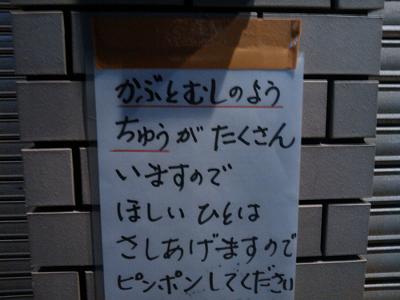 かぶとむしのよう
ちゅうがたくさん
いますので
ほしいひとは
さしあげますので
ピンポンしてください